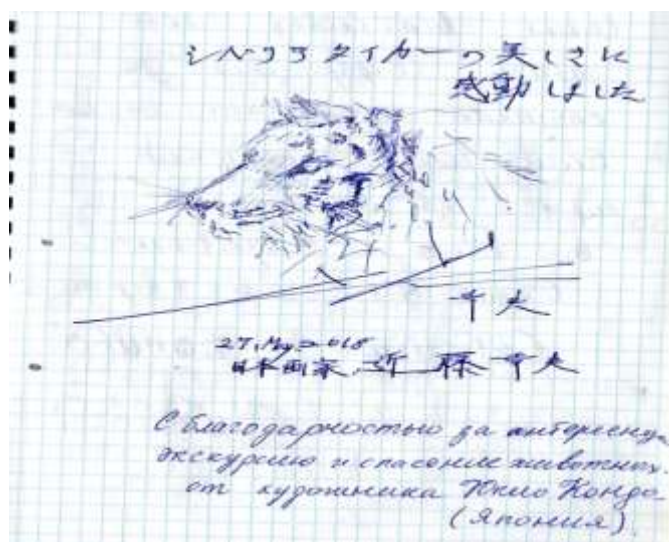 シベリアタイガーの美しさに
感動しました
27, May, 2018
日本画家 近藤
С благодарностью за интересную
экскурсию и спасение животных
от художника Юкио Кондо
(Япония).